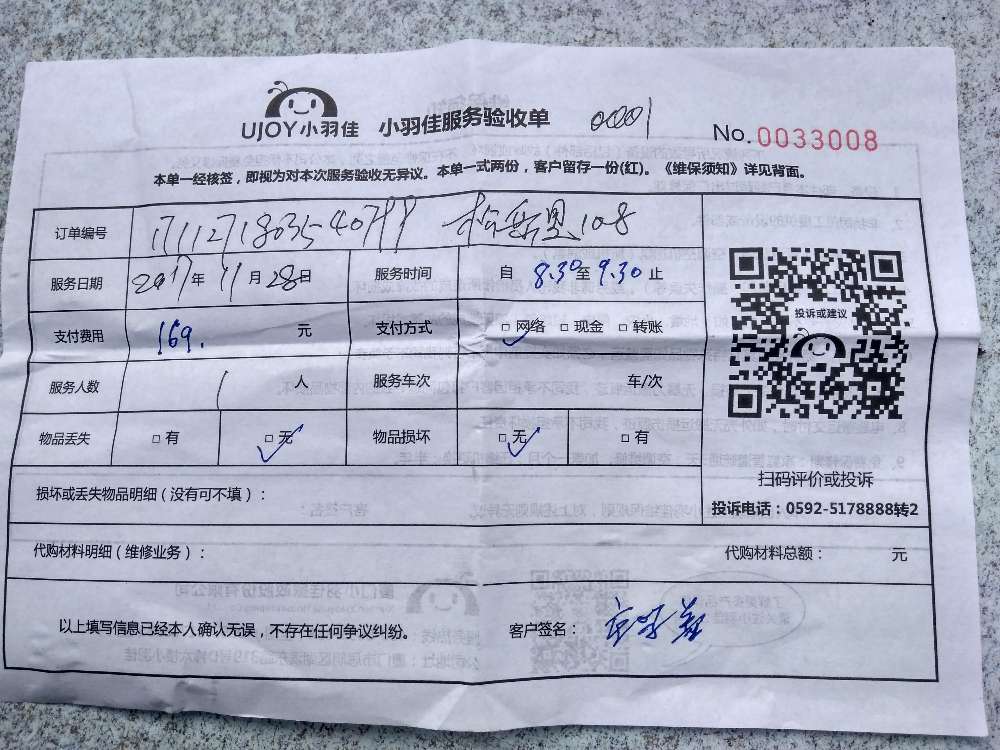 UJOY小羽佳 小羽佳服务验收单 0001
No.0033008
本单一经核签，即视为对本次服务验收无异议。本单一式两份，客户留存一份(红)。《维保须知》详见背面。
订单编号
服务日期 2017年 11月28日 服务时间 自 8.30至9.30止
支付费用 169. 元 支付方式 □网络 □现金 □转账
服务人数 1 人 服务车次 车/次
物品丢失 □有 □无 物品损坏 □无 □有
投诉或建议
扫码评价或投诉
投诉电话：0592-5178888转2
损坏或丢失物品明细（没有可不填）：
代购材料明细（维修业务）： 代购材料总额： 元
以上填写信息已经本人确认无误，不存在任何争议纠纷。 客户签名：